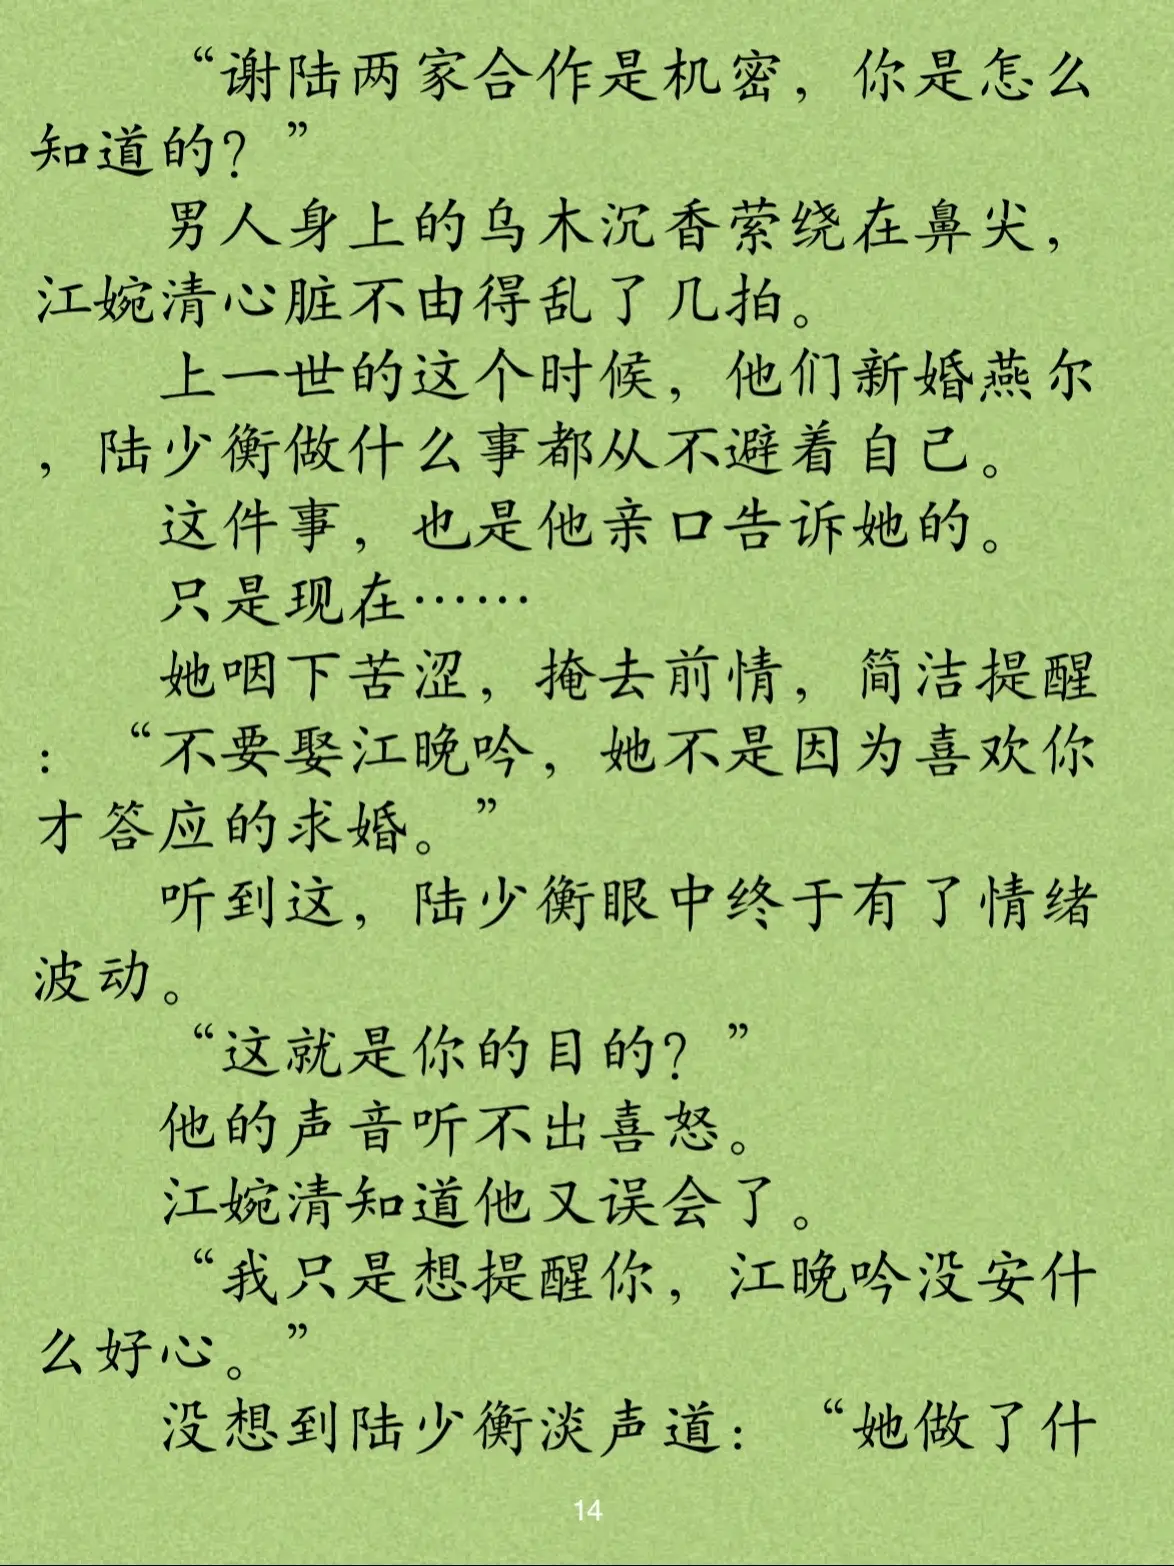 “谢陆两家合作是机密，你是怎么
知道的？”
男人身上的乌木沉香萦绕在鼻尖，
江婉清心脏不由得乱了几拍。
上一世的这个时候，他们新婚燕尔
，陆少衡做什么事都从不避着自己。
这件事，也是他亲口告诉她的。
只是现在……
她咽下苦涩，掩去前情，简洁提醒
：“不要娶江晚吟，她不是因为喜欢你
才答应的求婚。”
听到这，陆少衡眼中终于有了情绪
波动。
“这就是你的目的？”
他的声音听不出喜怒。
江婉清知道他又误会了。
“我只是想提醒你，江晚吟没安什
么好心。”
没想到陆少衡淡声道：“她做了什
14